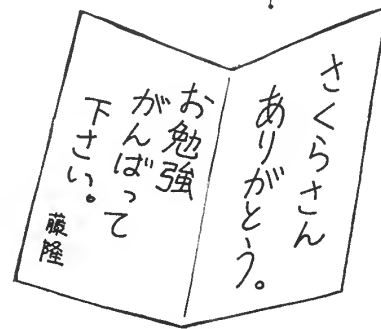 さくらさん
ありがとう。
お勉強
がんばって
下さい。
藤隆